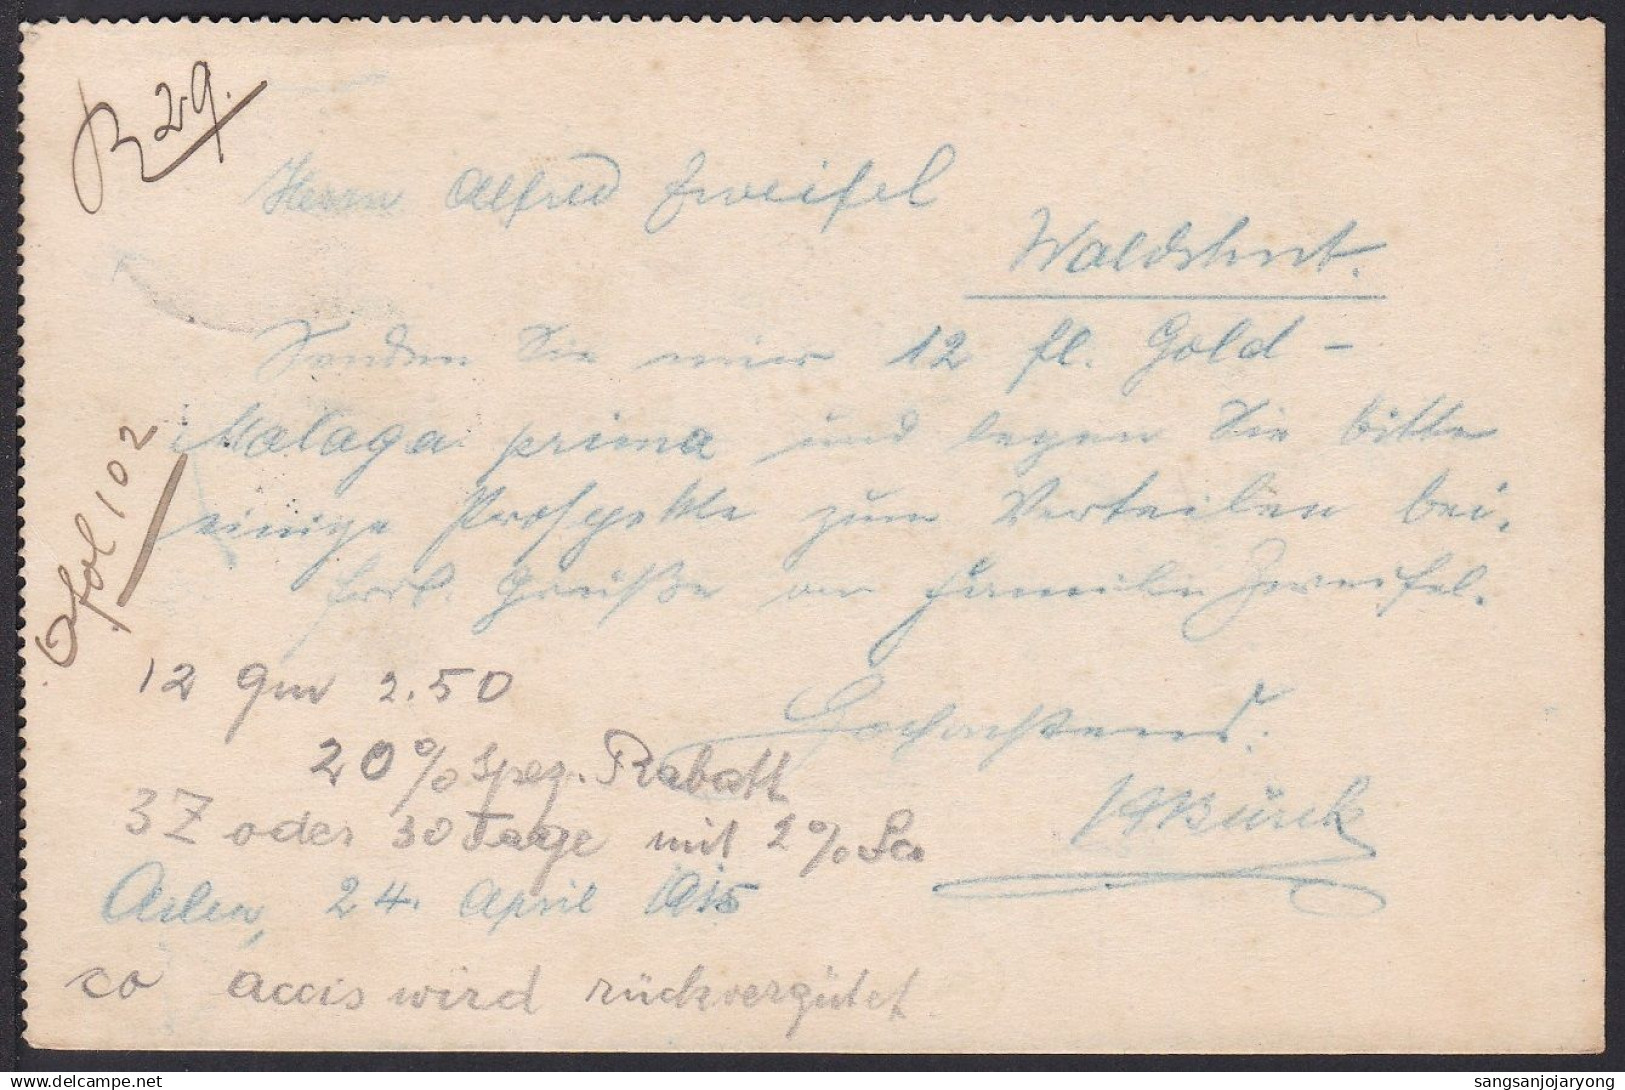 R 29.
Herrn Alfred Zweifel
Waldshut.
Senden Sie mir 12 fl. Gold-
Malaga prima und legen Sie bitte
einige Prospekte zum Verteilen bei.
Frdl. Grüße an Familie Zweifel.
fol 102
12 2.50
Hochachtend.
20% spez. Rabatt
Bürck
3Z oder 30 Tage mit 2% Sco
24. April 1915
co accis wird rückvergütet.
sangsanjojaryong